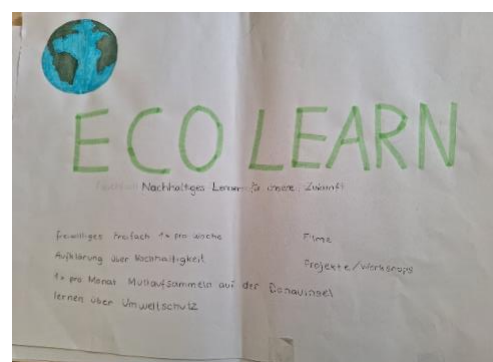 ECO LEARN
Nachhaltiges Lernen für unsere Zukunft
freiwilliges Freifach 1x pro Woche
Aufklärung über Nachhaltigkeit
1x pro Monat Müllaufsammeln auf der Donauinsel
lernen über Umweltschutz
Filme
Projekte/Workshops